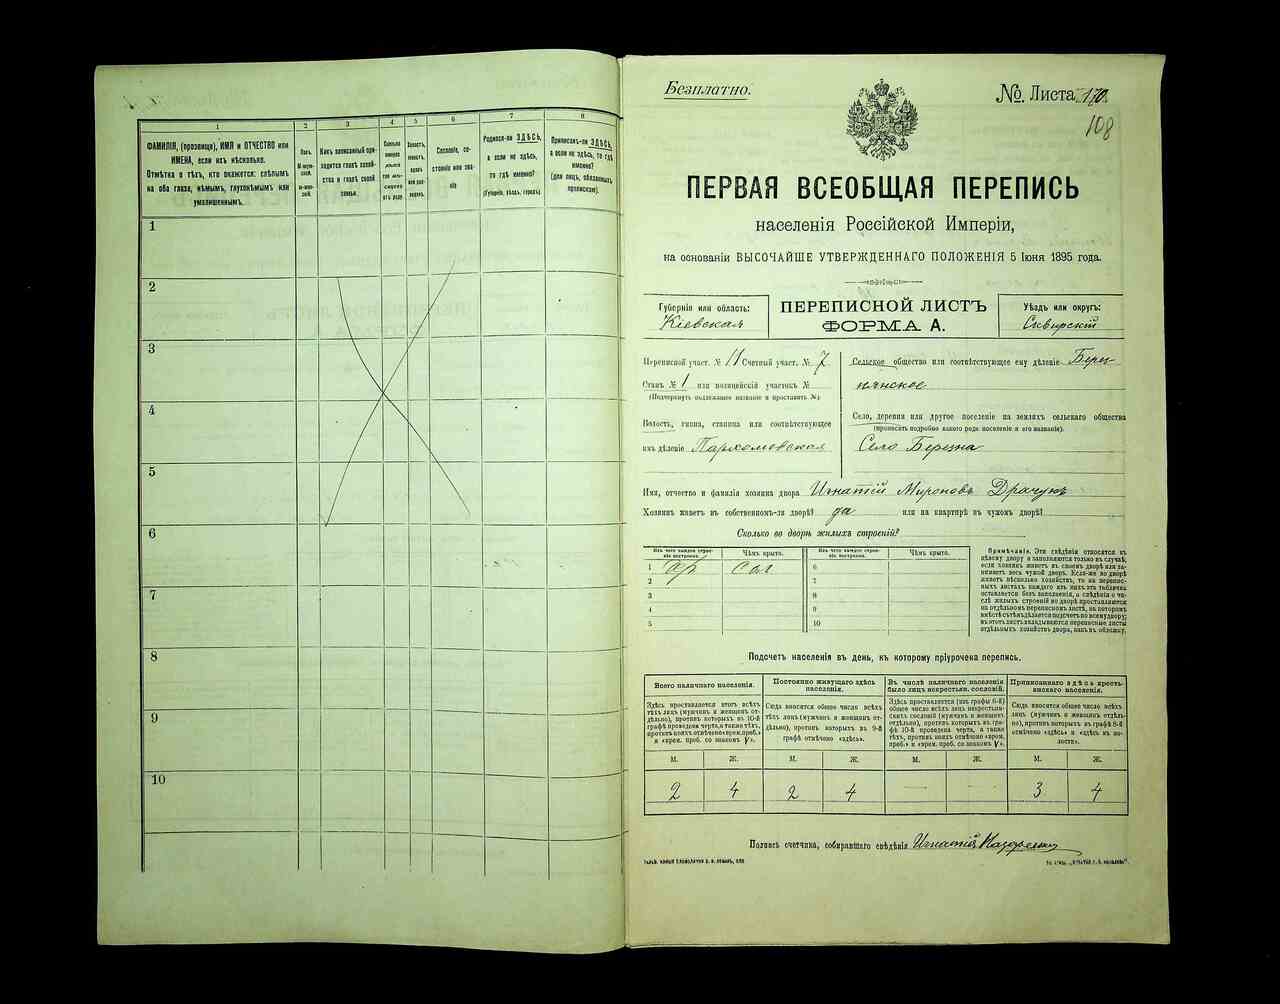 1
2
3
4
5
6
7
8
ФАМИЛІЯ, (прозвище), ИМЯ и ОТЧЕСТВО или
ИМЕНА, если ихъ нѣсколько.
Отмѣтка о тѣхъ, кто окажется: слѣпымъ
на оба глаза, нѣмымъ, глухонѣмымъ или
умалишеннымъ.
Полъ.
Какъ записанный при-
ходится главѣ хозяй-
ства и главѣ своей
семьи.
Сословіе, со-
стояніе или зва-
ніе
Родился-ли ЗДѢСЬ,
а если не здѣсь,
то гдѣ именно?
(Губернія, уѣздъ, городъ).
Приписанъ-ли ЗДѢСЬ,
а если не здѣсь, то гдѣ
именно?
(для лицъ, обязанныхъ
припискою).
1
2
3
4
5
6
7
8
9
10
Безплатно.
№ Листа 170.
108
ПЕРВАЯ ВСЕОБЩАЯ ПЕРЕПИСЬ
населенія Россійской Имперіи,
на основаніи ВЫСОЧАЙШЕ УТВЕРЖДЕННАГО ПОЛОЖЕНІЯ 5 Іюня 1895 года.
Губернія или область:
Кіевская
ПЕРЕПИСНОЙ ЛИСТЪ
ФОРМА А.
Уѣздъ или округъ:
Сквирскій
Переписной участ. № 11 Счетный участ. № 7
Станъ № 1 или полицейскій участокъ №
(Подчеркнуть подлежащее названіе и проставить №).
Волость, гмина, станица или соотвѣтствующее
имъ дѣленіе Пархомовская
Сельское общество или соотвѣтствующее ему дѣленіе Берез-
нянское
Село, деревня или другое поселеніе на земляхъ сельскаго общества
(прописать подробно какого рода поселеніе и его названіе).
Село Березна
Имя, отчество и фамилія хозяина двора Игнатій Мироновъ Драчукъ
Хозяинъ живетъ въ собственномъ-ли дворѣ? да или на квартирѣ въ чужомъ дворѣ?
Сколько во дворѣ жилыхъ строеній?
Изъ чего каждое строе-
ніе построено.
Чѣмъ крыто.
Изъ чего каждое строе-
ніе построено.
Чѣмъ крыто.
1 сол 6
2 7
3 8
4 9
5 10
Примѣчаніе. Эти свѣдѣнія относятся къ
цѣлому двору и заполняются только въ случаѣ,
если хозяинъ живетъ въ своемъ дворѣ или за-
нимаетъ весь чужой дворъ. Если-же во дворѣ
живетъ нѣсколько хозяйствъ, то на перепис-
ныхъ листахъ каждаго изъ нихъ эта табличка
оставляется безъ заполненія, а свѣдѣнія о чи-
слѣ жилыхъ строеній во дворѣ проставляются
на отдѣльномъ переписномъ листѣ, на которомъ
вмѣстѣ съ тѣмъ дѣлается подсчетъ по всему двору;
въ этотъ листъ вкладываются переписные листы
отдѣльныхъ хозяйствъ двора, какъ въ обложку.
Подсчетъ населенія въ день, къ которому пріурочена перепись.
Всего наличнаго населенія.
Постоянно живущаго здѣсь
населенія.
Въ числѣ наличнаго населенія
было лицъ некрестьян. сословій.
Приписаннаго здѣсь кресть-
янскаго населенія.
Здѣсь проставляется итогъ всѣхъ
тѣхъ лицъ (мужчинъ и женщинъ от-
дѣльно), противъ которыхъ въ 10-й
графѣ проведена черта, а также тѣхъ,
противъ коихъ отмѣчено «врем. преб.»
и «врем. преб. со знакомъ V».
Сюда вносится общее число всѣхъ
тѣхъ лицъ (мужчинъ и женщинъ от-
дѣльно), противъ которыхъ въ 9-й
графѣ отмѣчено «здѣсь».
Здѣсь проставляется (изъ графы 6-й)
общее число всѣхъ лицъ некрестьян-
скихъ сословій (мужчинъ и женщинъ
отдѣльно), противъ которыхъ въ гра-
фѣ 10-й проведена черта, а также
тѣхъ, противъ коихъ отмѣчено «врем.
преб.» и «врем. преб. со знакомъ V».
Сюда вносится общее число всѣхъ
лицъ (мужчинъ и женщинъ отдѣль-
но), противъ которыхъ въ графѣ 8-й
отмѣчено «здѣсь» и «здѣсь въ во-
лости».
М. Ж. М. Ж. М. Ж. М. Ж.
2 4 2 4 — — 3 4
Подпись счетчика, собиравшаго свѣдѣнія Игнатій